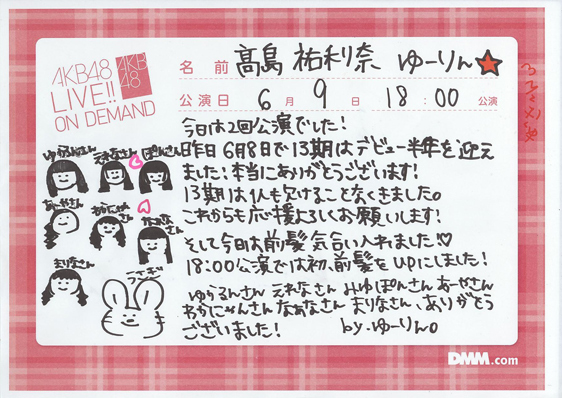 AKB48
LIVE!!
ON DEMAND
AKB
48
名前 髙島 祐利奈 ゆーりん
公演日 6月 9日 18:00 公演
今日は2回公演でした!
昨日6月8日で13期はデビュー半年を迎え
ました!本当にありがとうございます!
13期は1人も欠けることなくきました。
これからも応援よろしくお願いします!
そして今日は前髪気合い入れました♡
18:00公演では初、前髪をUPにしました!
ゆうるんさん えれなさん みゆぽんさん あーやさん
わかにゃんさん なぁなさん まりなさん、ありがとう
ございました! by.ゆーりん。
ゆうるんさん
えれなさん
ぽんさん
あーやさん
わかにゃ
さん
なぁな
さん
まりなさん
うさぎ
DMM.com